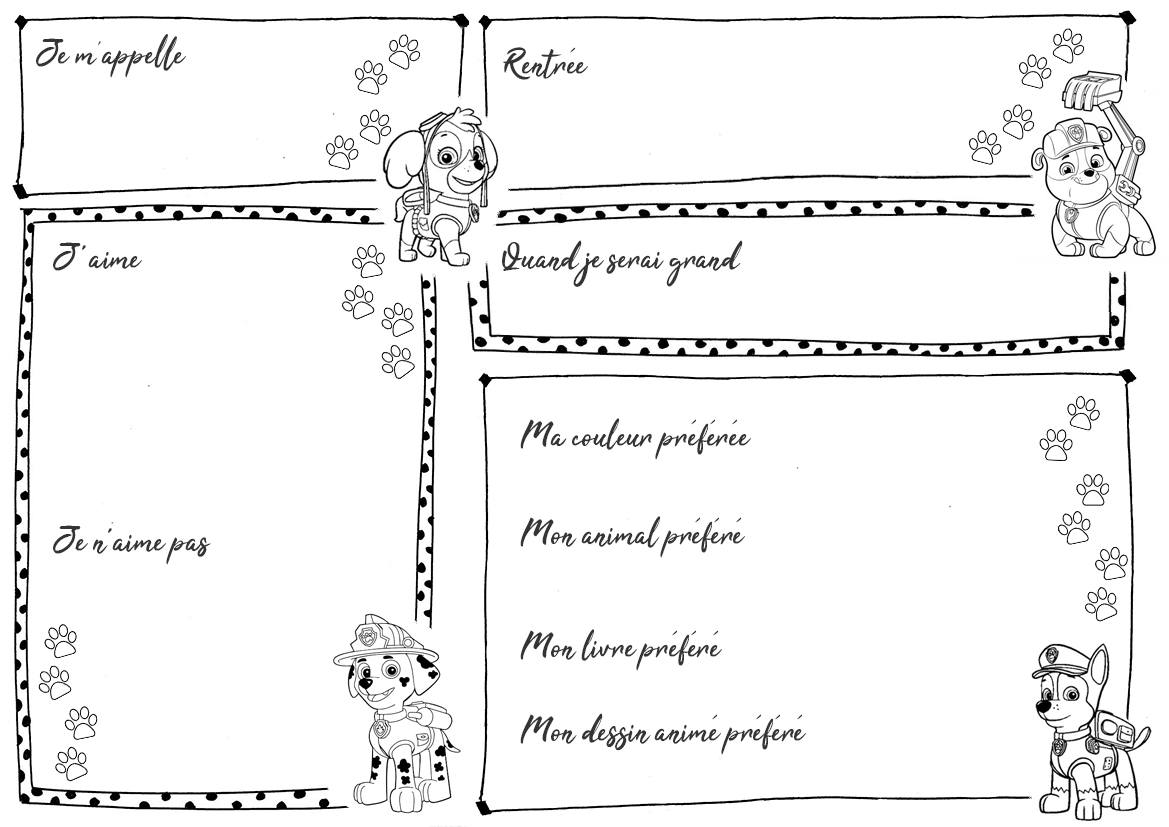 Je m'appelle
Rentrée
J'aime
Quand je serai grand
Ma couleur préférée
Je n'aime pas
Mon animal préféré
Mon livre préféré
Mon dessin animé préféré